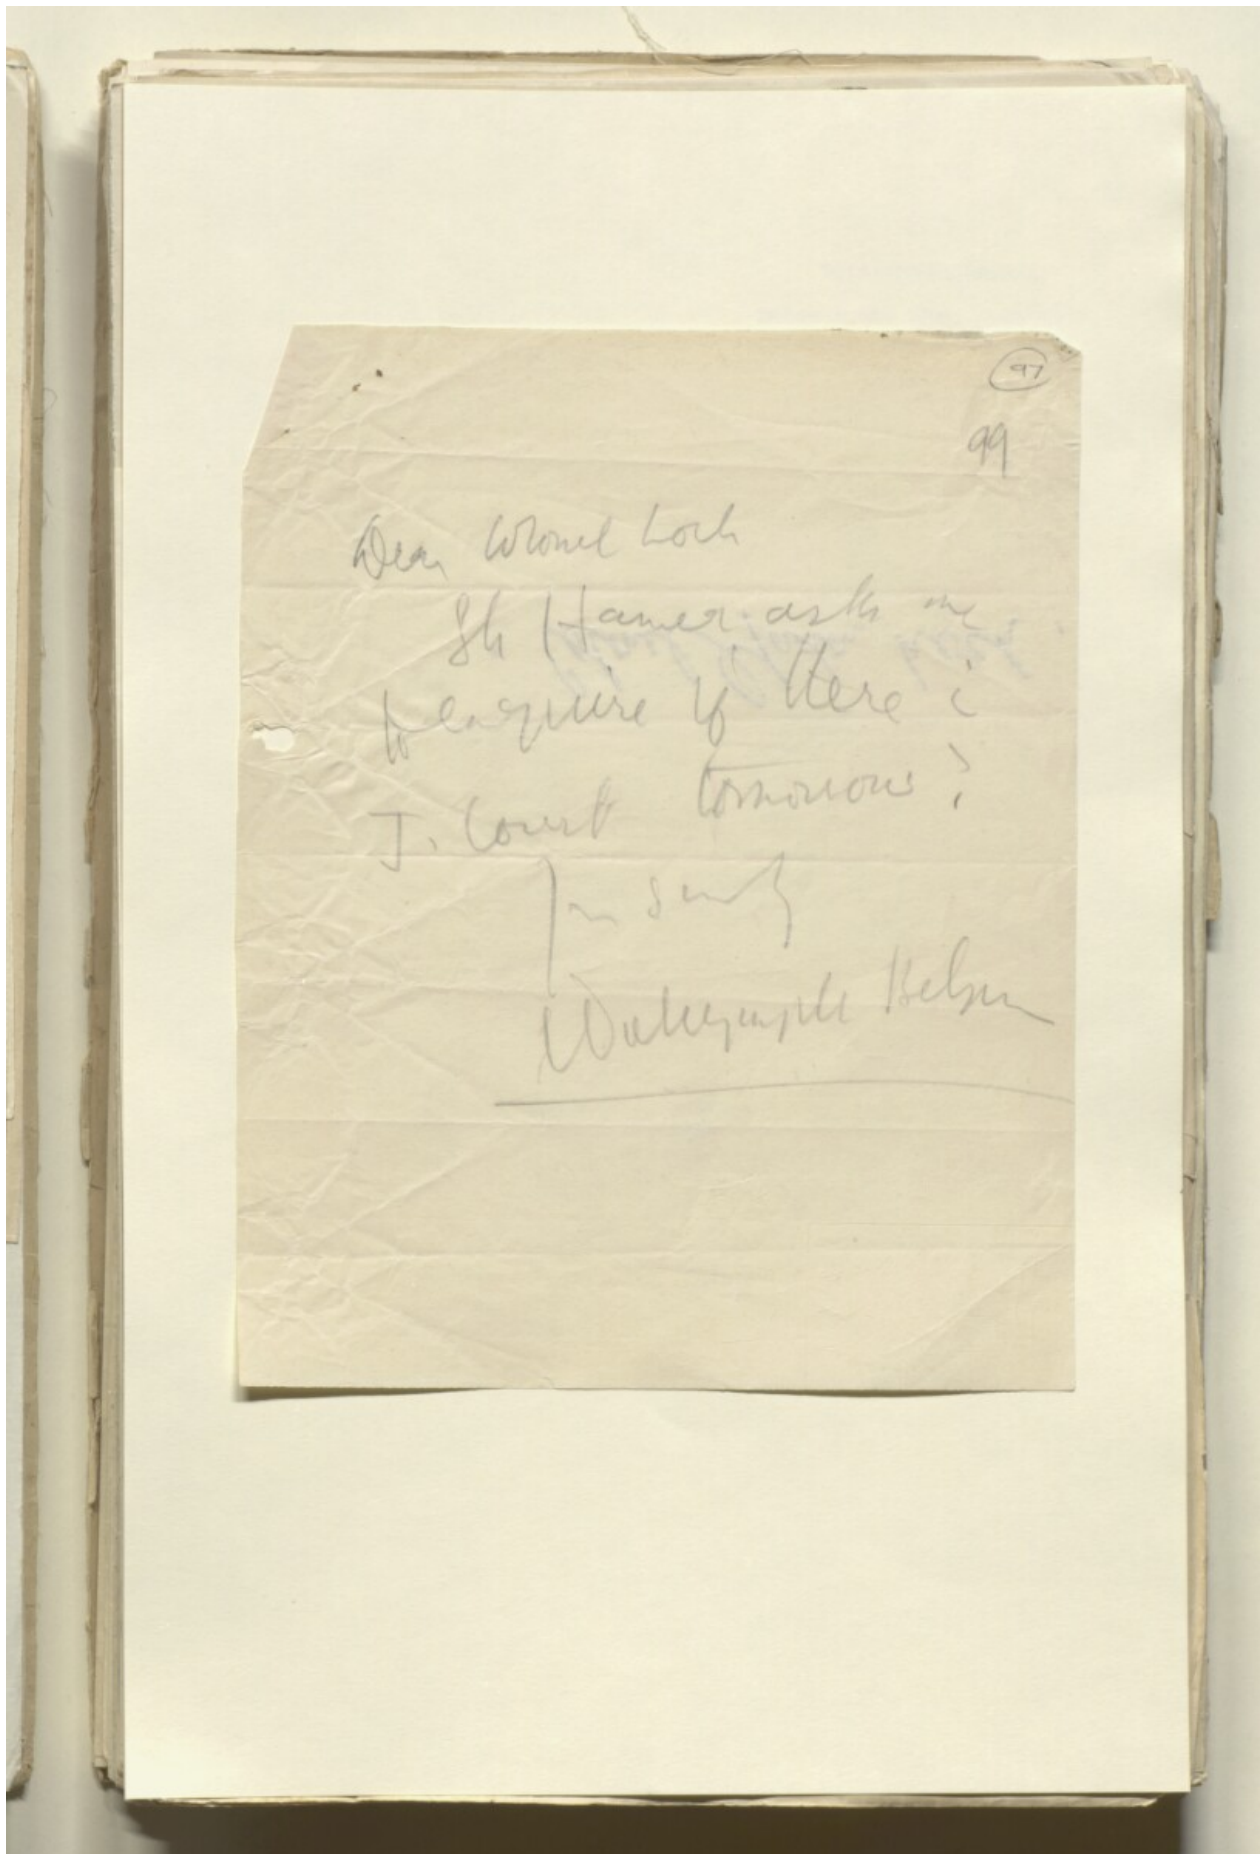 97
99
Dear Colonel Loch
Sh Hamed asks me
to enquire if there is
J. Court tomorrow?
Yrs sincerely
CDalrymple Belgrave